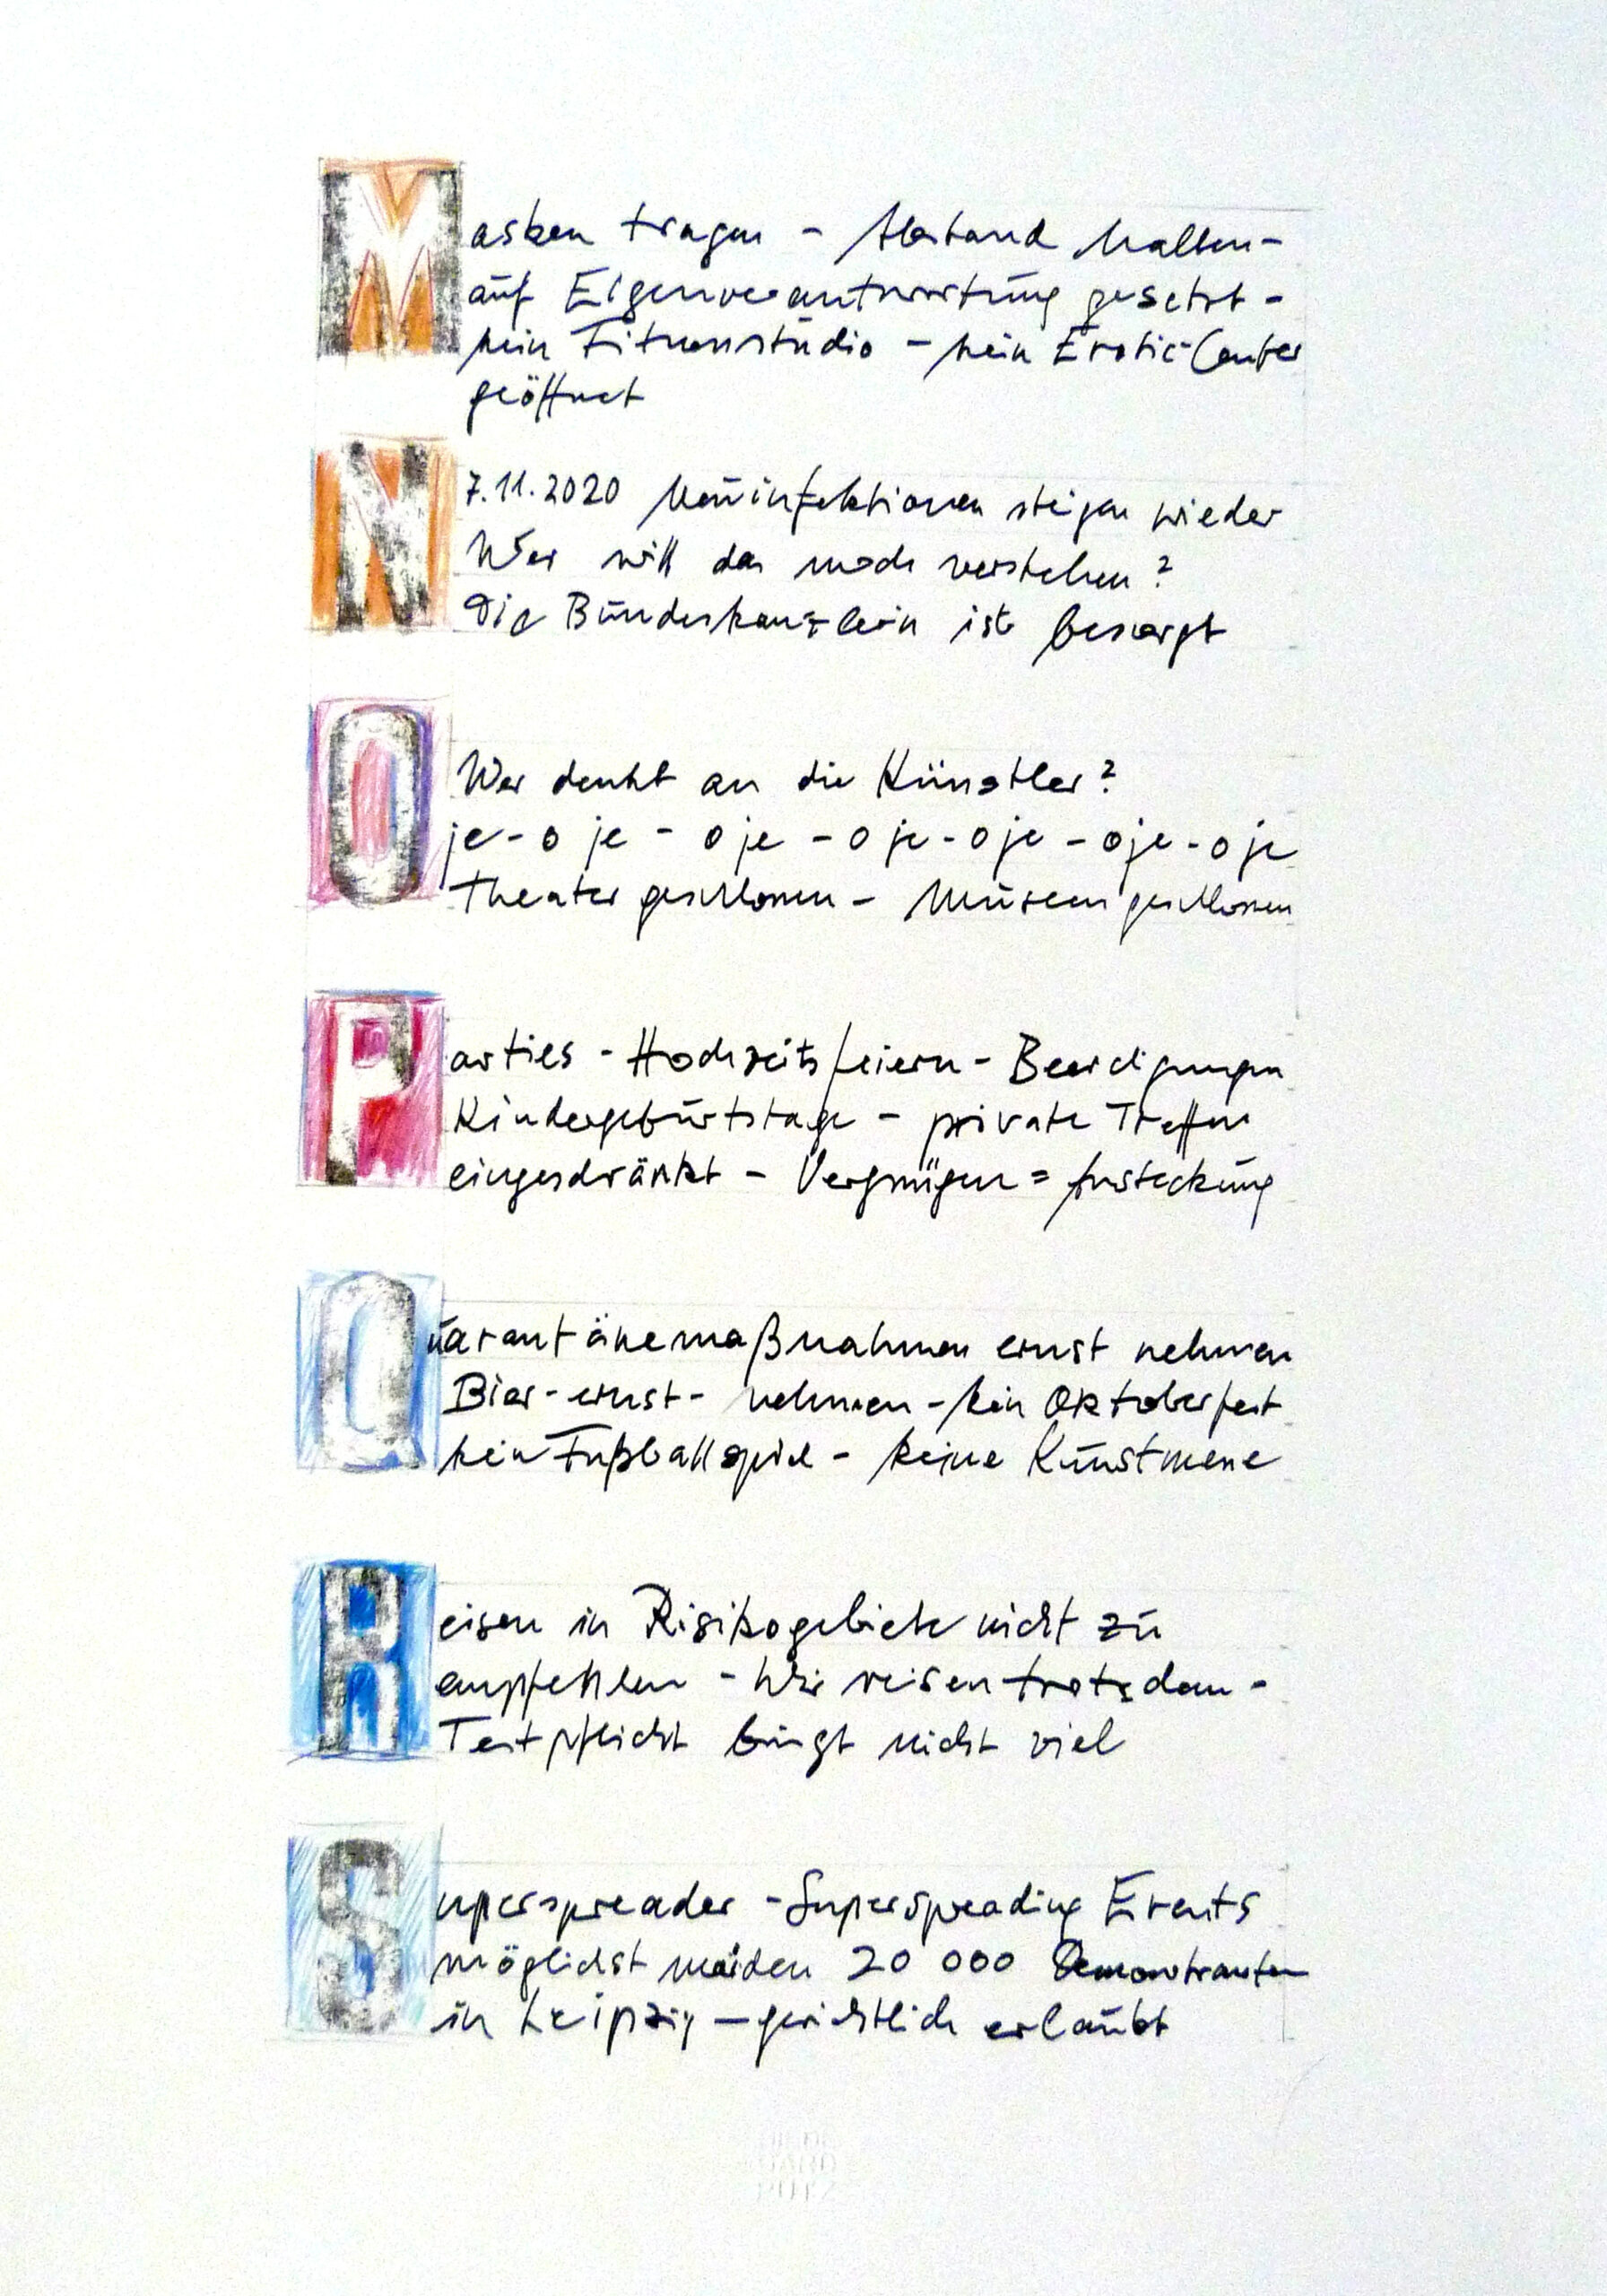 Masken tragen - Abstand halten -
auf Eigenverantwortung gesetzt -
kein Fitnessstudio - kein Erotic-Center
geöffnet
N
7.11.2020 Neuinfektionen steigen wieder
Wer will das noch verstehen?
Die Bundeskanzlerin ist besorgt
Wer denkt an die Künstler?
Oje - o je - o je - o je - o je - oje - o je
Theater geschlossen - Museen geschlossen
Parties - Hochzeitsfeiern - Beerdigungen
Kindergeburtstage - private Treffen
eingeschränkt - Vergnügen = Ansteckung
Quarantänemaßnahmen ernst nehmen
Bier - ernst - nehmen - kein Oktoberfest
kein Fußballspiel - keine Kunstmesse
Reisen in Risikogebiete nicht zu
empfehlen - Wir reisen trotzdem -
Testpflicht bringt nicht viel
Superspreader - Superspreading Events
möglichst meiden 20 000 Demonstranten
in Leipzig - gerichtlich erlaubt